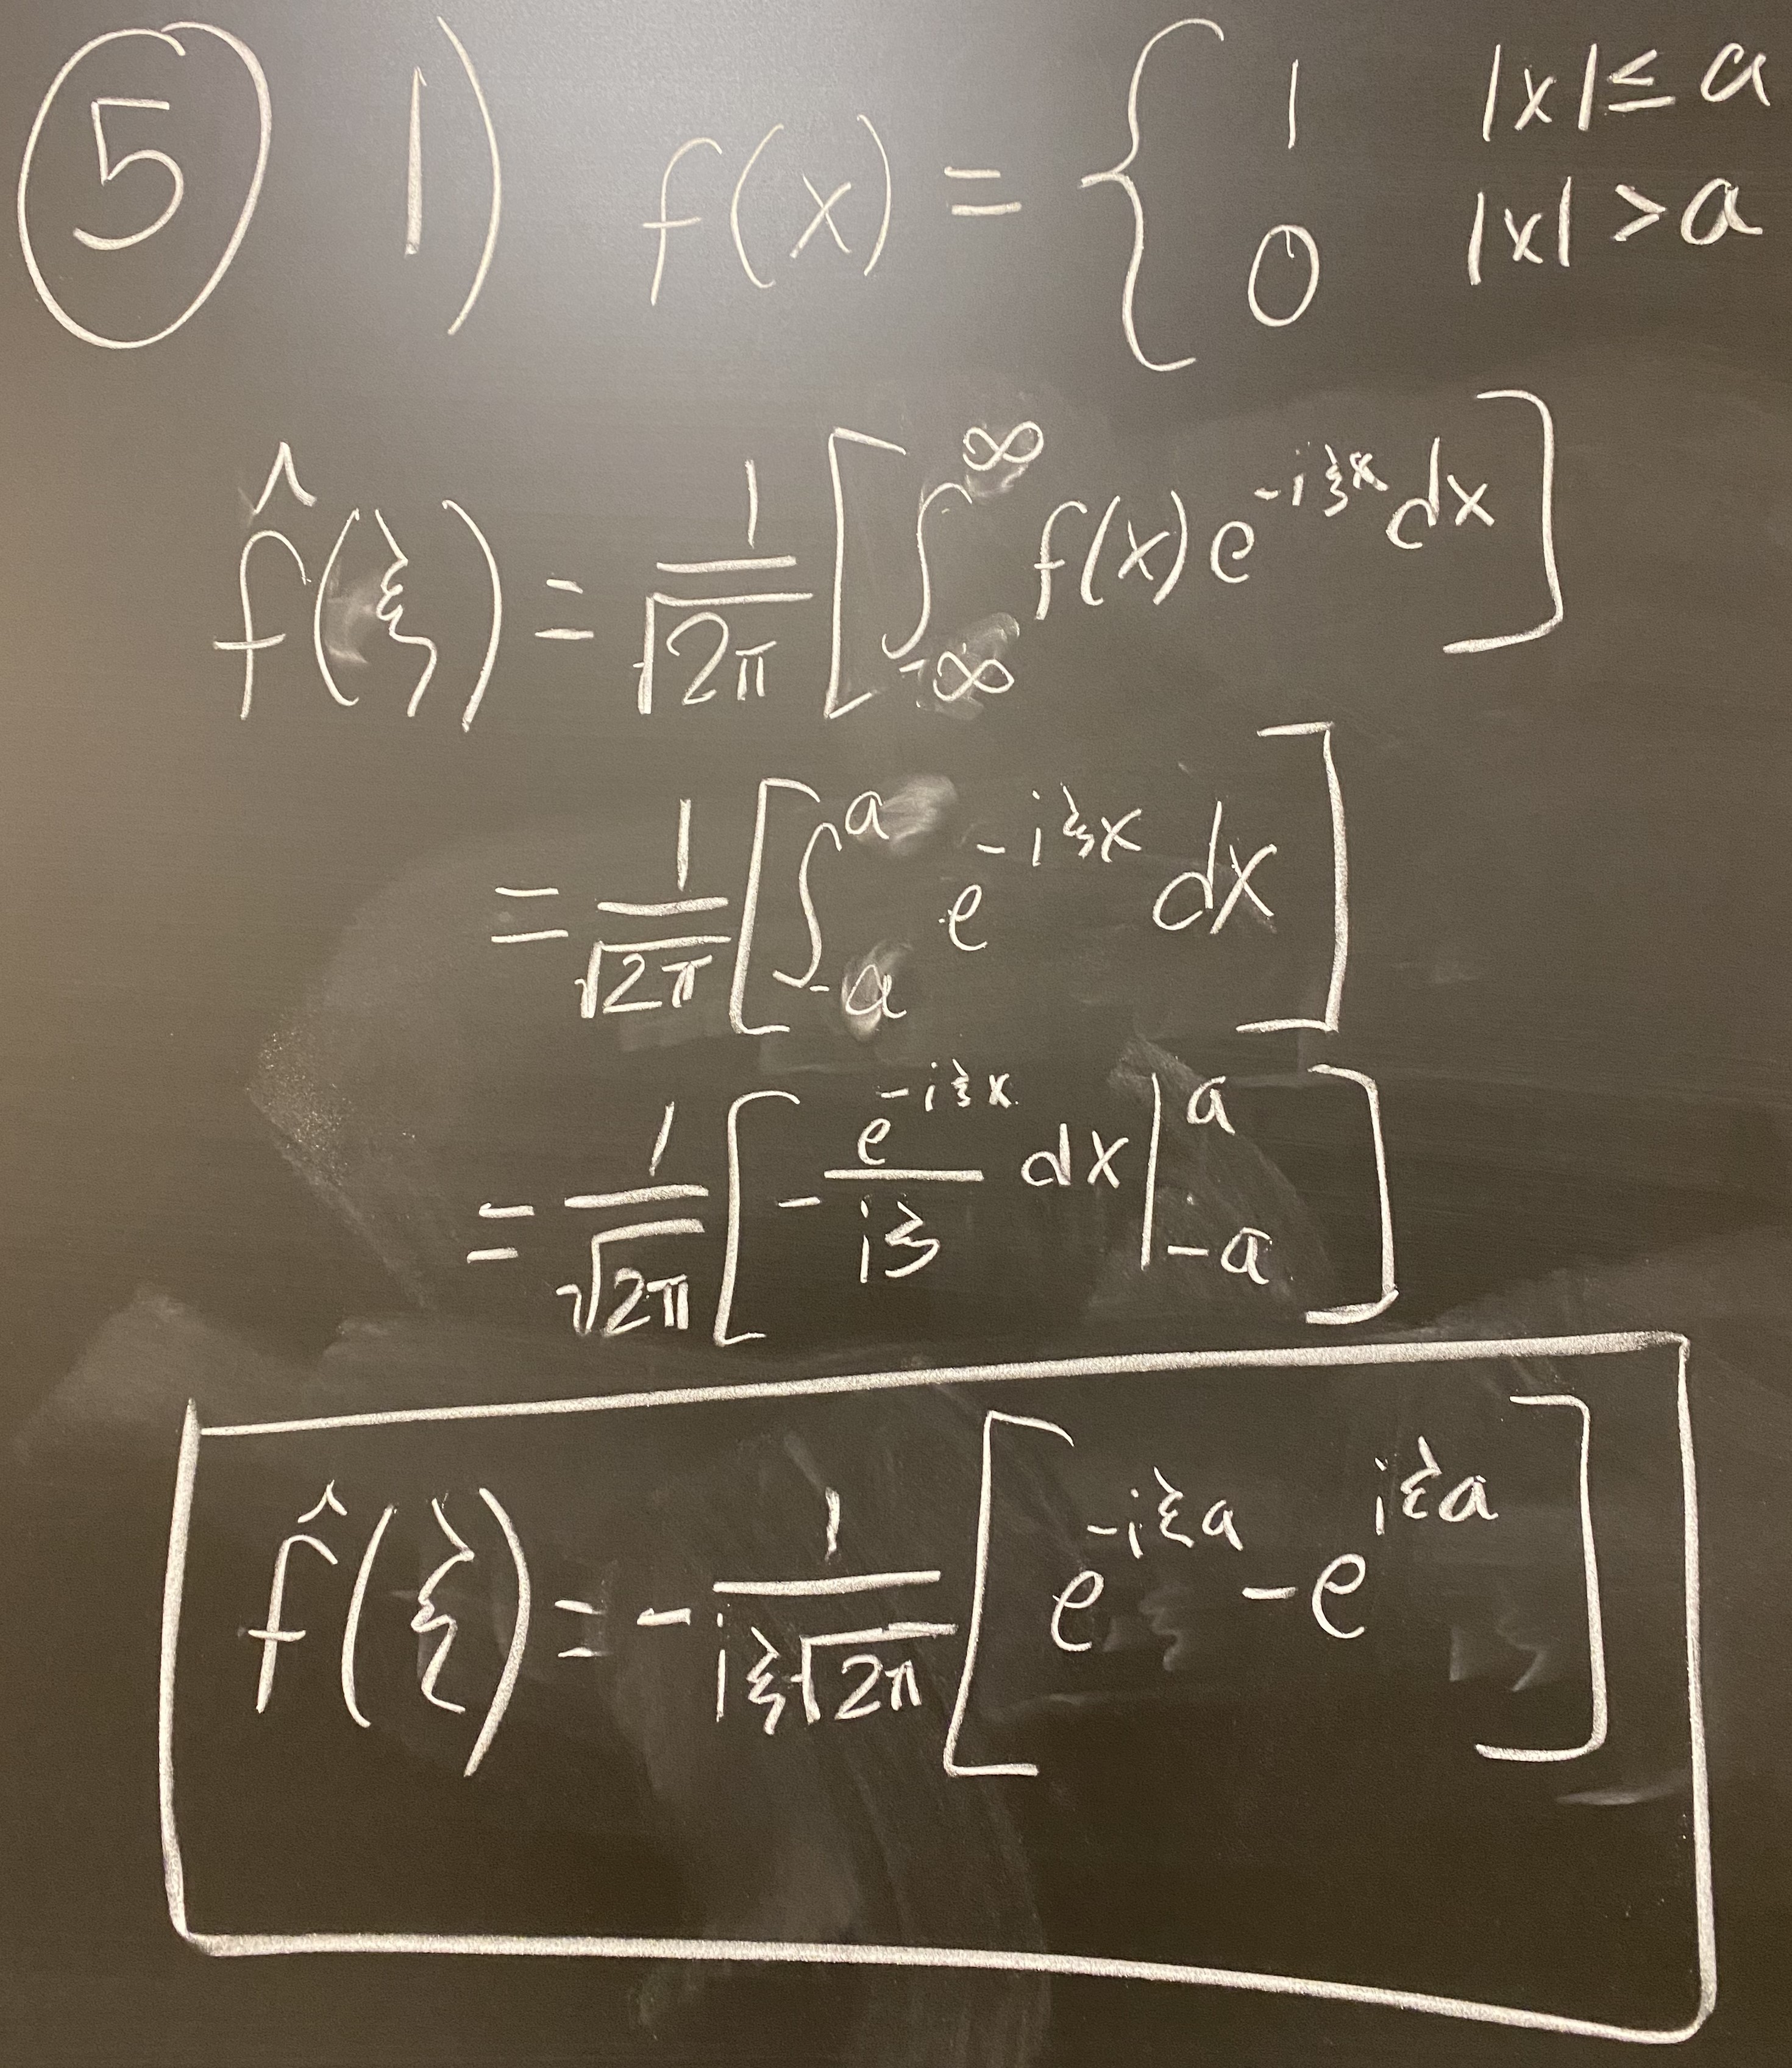 ⑤ 1) f(x) = { 1 |x| ≤ a
0 |x| > a
f̂(ξ) = 1/√2π [ ∫_{-∞}^{∞} f(x) e^{-iξx} dx ]
= 1/√2π [ ∫_{-a}^{a} e^{-iξx} dx ]
= 1/√2π [ - e^{-iξx}/iξ dx |_{-a}^{a} ]
f̂(ξ) = - 1/iξ√2π [ e^{-iξa} - e^{iξa} ]